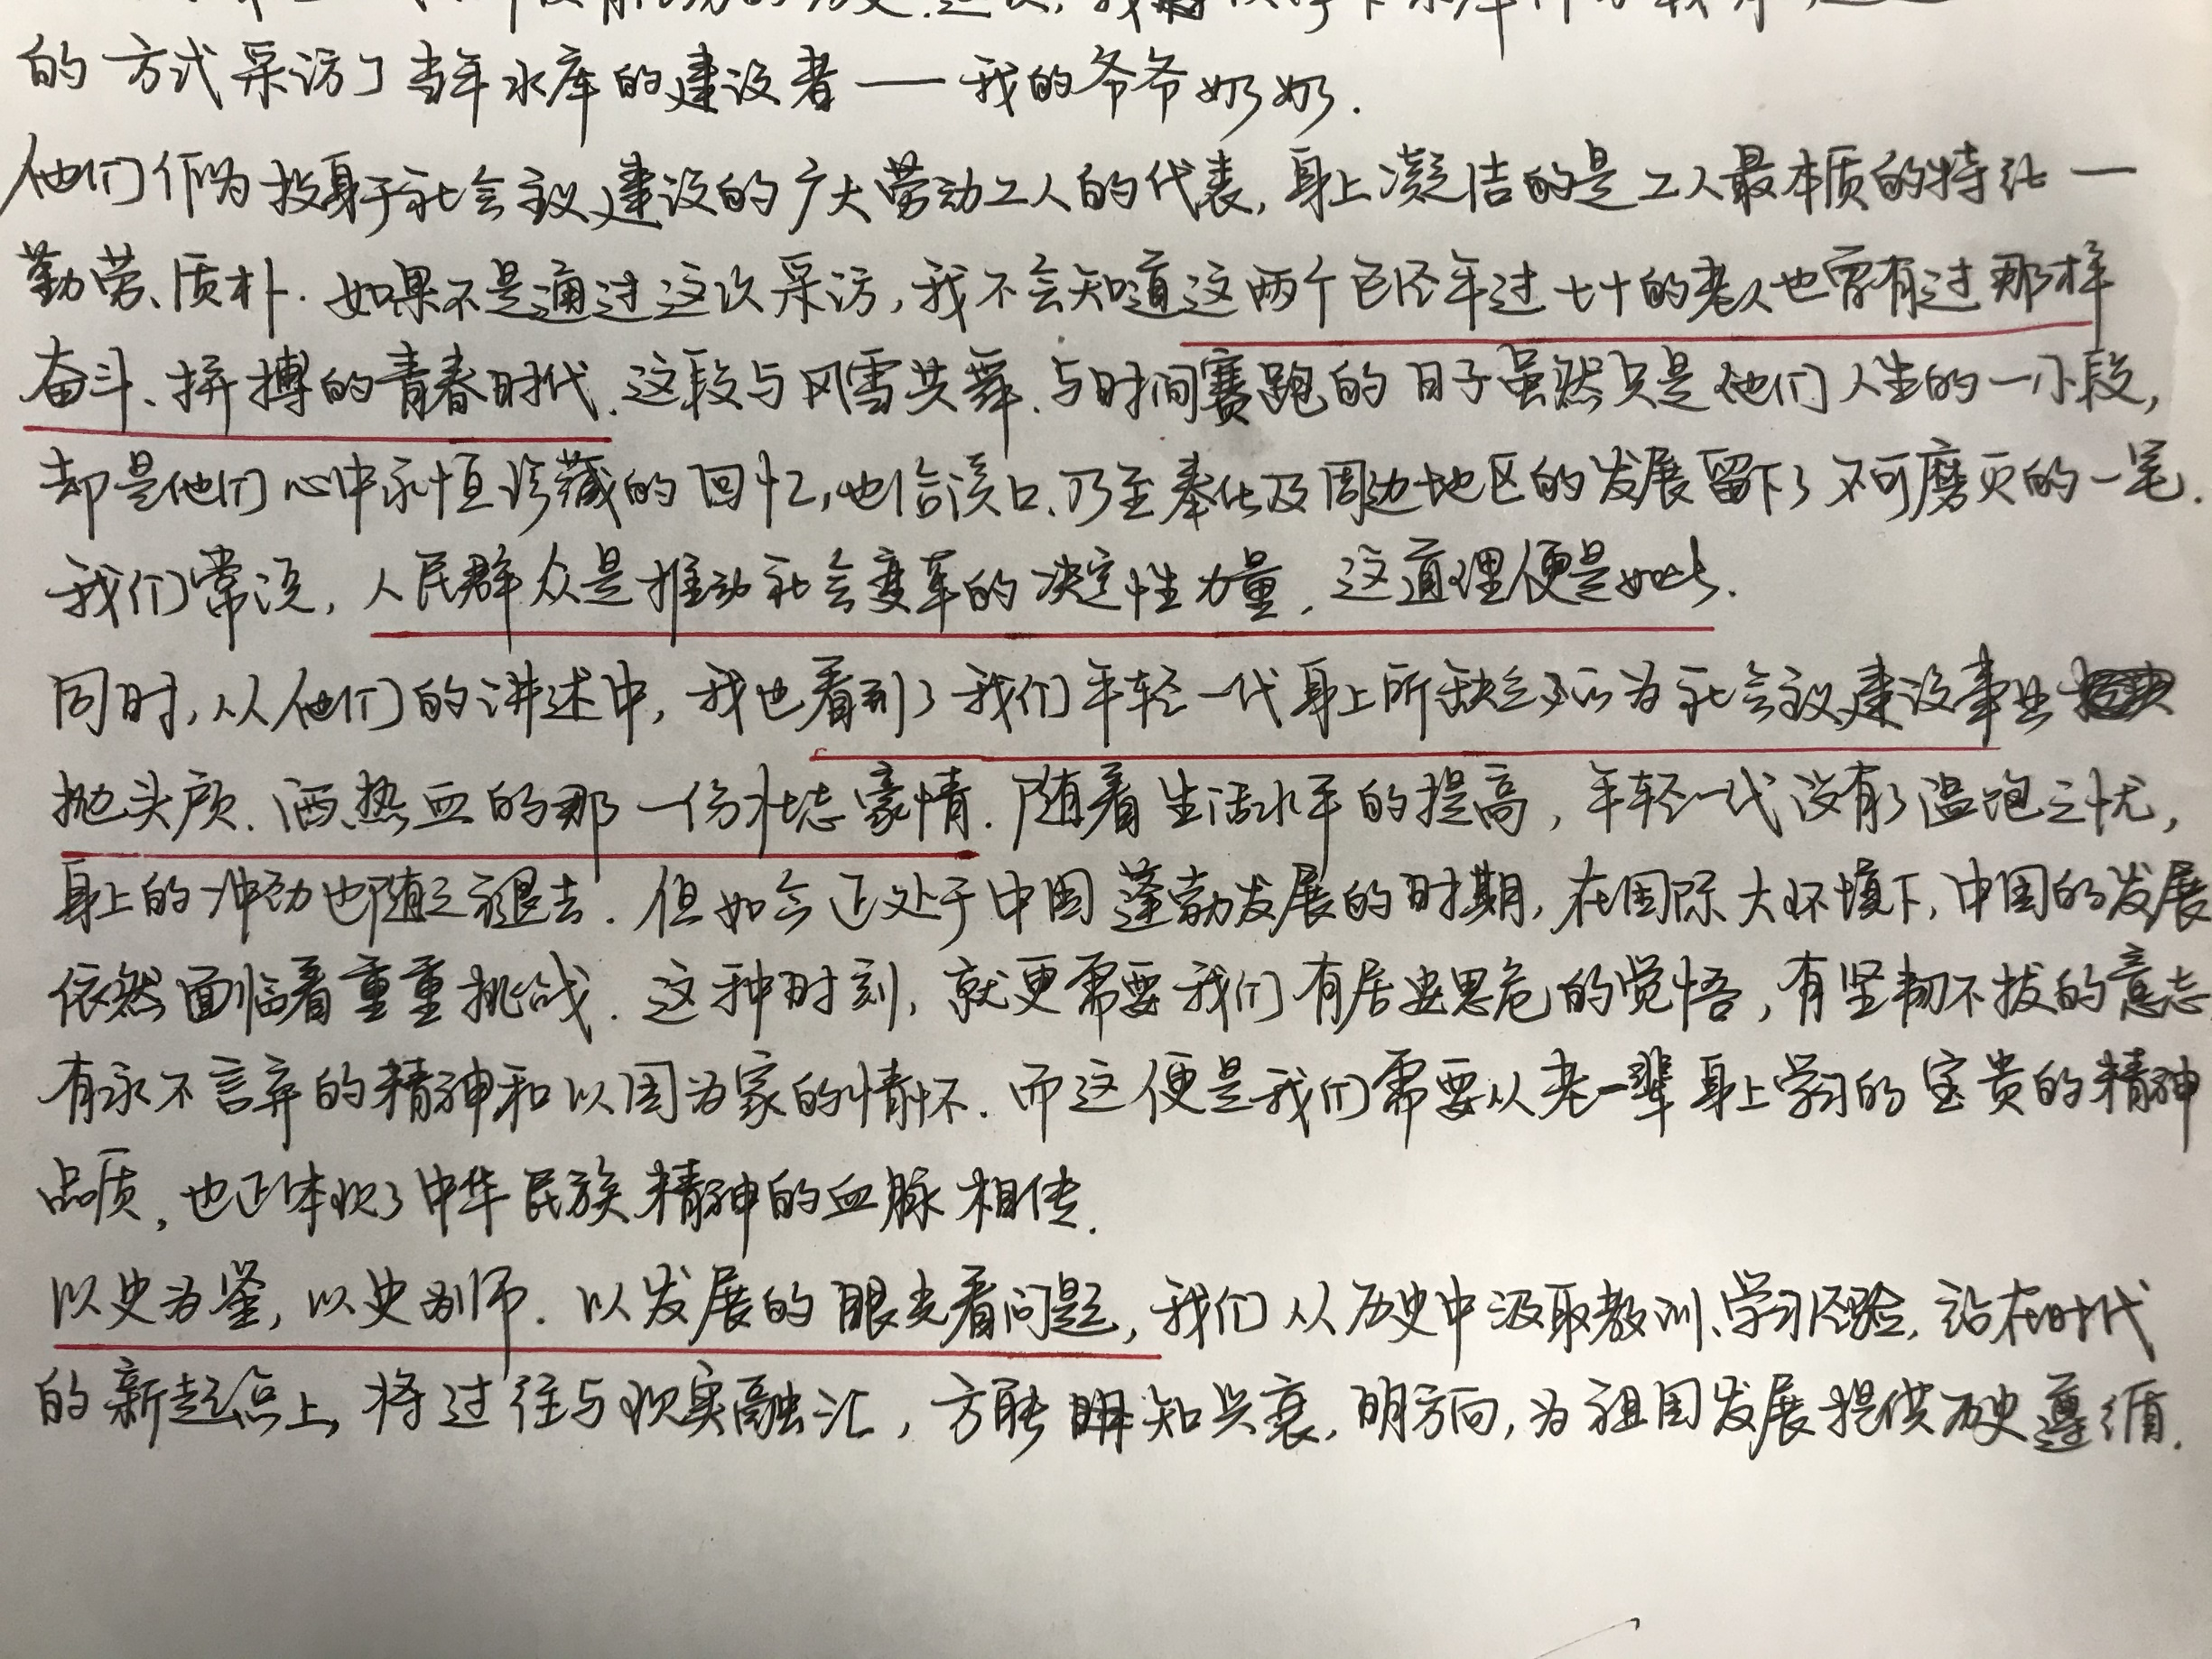 的方式采访了当年水库的建设者——我的爷爷奶奶.
他们作为投身于社会主义建设的广大劳动工人的代表,身上凝结的是工人最本质的特征—
勤劳、质朴.如果不是通过这次采访,我不会知道这两个已经年过七十的老人也曾有过那样
奋斗、拼搏的青春时代.这段与风雪共舞、与时间赛跑的日子虽然只是他们人生的一小段,
却是他们心中永恒珍藏的回忆,也给溪口、乃至奉化及周边地区的发展留下了不可磨灭的一笔.
我们常说,人民群众是推动社会变革的决定性力量,这道理便是如此.
同时,从他们的讲述中,我也看到了我们年轻一代身上所缺乏的为社会主义建设事业
抛头颅、洒热血的那一份壮志豪情.随着生活水平的提高,年轻一代没有了温饱之忧,
身上的冲劲也随之褪去.但如今正处于中国蓬勃发展的时期,在国际大环境下,中国的发展
依然面临着重重挑战.这种时刻,就更需要我们有居安思危的觉悟,有坚韧不拔的意志
有永不言弃的精神和以国为家的情怀.而这便是我们需要从老一辈身上学习的宝贵的精神
品质,也正体现了中华民族精神的血脉相传.
以史为鉴,以史为师.以发展的眼光看问题,我们从历史中汲取教训、学习经验,站在时代
的新起点上,将过往与现实融汇,方能明知兴衰,明方向,为祖国发展提供历史遵循.